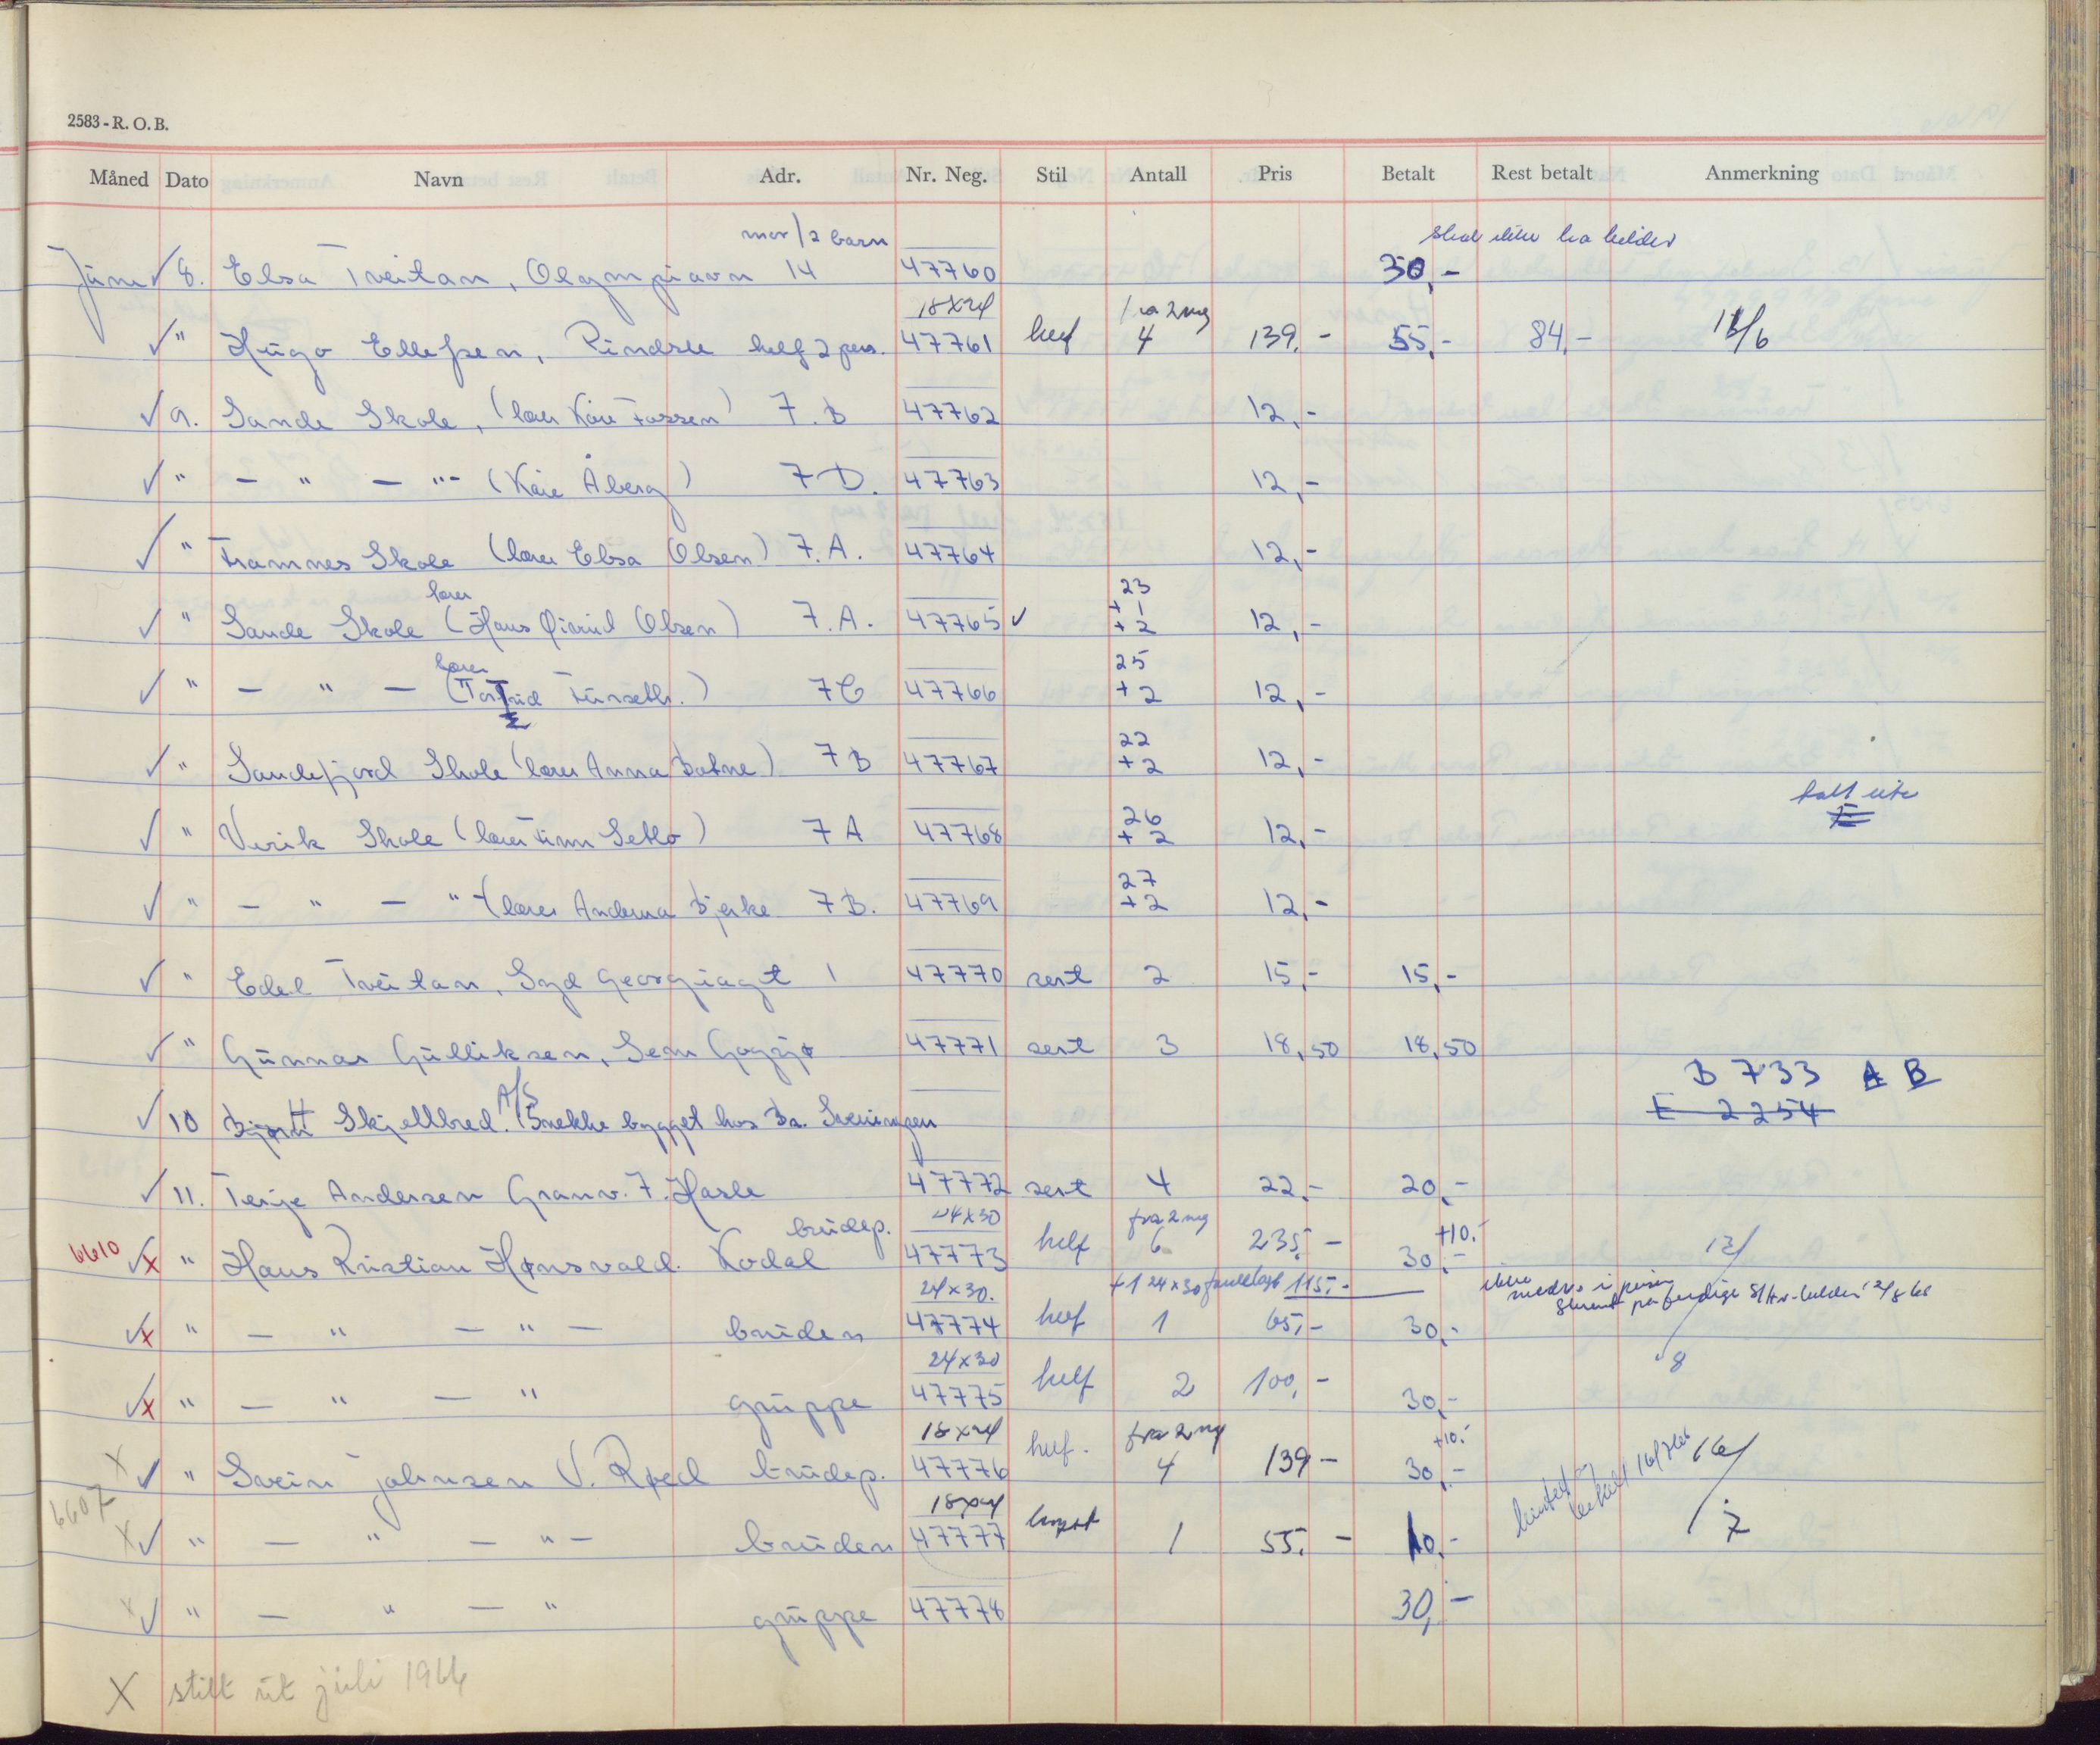 2583-R.O.B.
Måned Dato Navn Adr. Nr. Neg. Stil Antall Pris Betalt Rest betalt Anmerkning
mor/2 barn skal ikke ha bilder
Juni ✓ 8. Elsa Tveitan, Olympiavn 14 47760 30,-
18x24 fra 2 neg
✓ " Hugo Ellefsen, Pindsle helf 2 pers. 47761 helf 4 139,- 55,- 84,- 16/6
✓ 9. Sande Skole, (lærer Kåre Fossen) 7.B 47762 12,-
✓ " - " - "- (Kåre Åberg) 7D. 47763 12,-
✓ " Framnes Skole (lærer Elsa Olsen) 7.A. 47764 12,-
lærer 23 + 1
✓ " Sande Skole (Hans Øivind Olsen) 7.A. 47765 ✓ + 2 12,-
lærer 25
✓ " - " - ( Furseth.) 7C 47766 + 2 12,-
22
✓ " Sandefjord Skole (lærer Anna Botne) 7B 47767 + 2 12,-
tatt ute
26
✓ " Virik Skole (lærer Finn Setlo) 7A 47768 + 2 12,-
27
✓ " - " - " - (lærer Anderna Bjerke 7B. 47769 + 2 12,-
✓ " Edel Tveitan, Syd Georgiagt 1 47770 sert 2 15,- 15,-
✓ " Gunnar Gulliksen, Sem Gogsjø 47771 sert 3 18,50 18,50
B 733 A B
E 2254
A/S
✓ 10 Skjellbred. Snekke bygget hos Br. Sveningen
✓ 11. Terje Andersen Granv. 7. Hasle 47772 sert 4 22,- 20,-
brudep. 24x30 fra 2 neg +10,-
6610 ✓x " Hans Kristian Hønsvald. Kodal 47773 helf 6 235,- 30,- 12/
24x30. +1 24x30 115,- ikke i prisen
på ferdige S/Hv-bilder 12/8 66
✓x " - " - " - bruden 47774 helf 1 65,- 30,-
24x30 8
✓x " - " - " gruppe 47775 helf 2 100,- 30,-
18x24 fra 2 neg +10,-
x ✓ " Svein Johnsen V. Råed brudep. 47776 helf. 4 139- 30,- 16/
6607 18x24 16/7 66
x ✓ " - " - " - bruden 47777 1 55,- 10,- /7
x ✓ " - " - " gruppe 47778 30,-
X stilt ut juli 1966